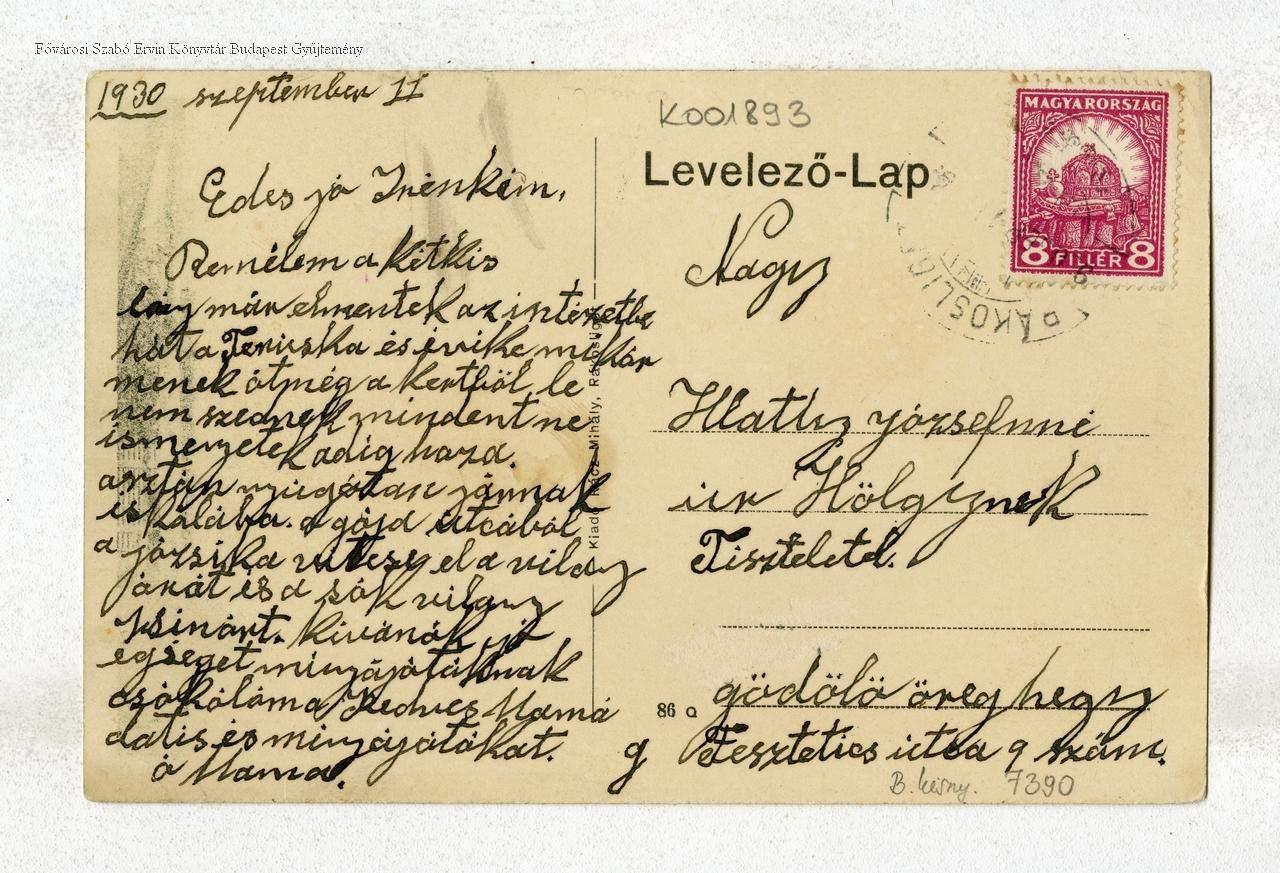 Fővárosi Szabó Ervin Könyvtár Budapest Gyűjtemény
1930 szeptember 11
K001893
Levelező-Lap
MAGYARORSZÁG
8 FILLÉR 8
RÁKOSLIGET
Edes jó Irénkém,
Remélem a kétkis
lány már elmentek az intézetbe
hát a Teruska és évike mikor
menek át még a kertböl le
nem szednek mindent ne
ismenyetek adig haza.
asztán nyugotan járnak
iskolába. a gójd utcából
a józsika vitesz el a vilany
árát és a sók vilany
kinárt. kivánok jó
egséget minyájotoknak
csókolóma Kedves Mamá
dat is és minyájotokat.
ó Mama.
Kiadja Rácz Mihály, Rákosliget
Nagy
Józsefnné
úr Hölgynek
Tisztelettel.
86 a
gödölö öreg hegy
g Fesztetics útca 9 szám.
B. körny. 7390